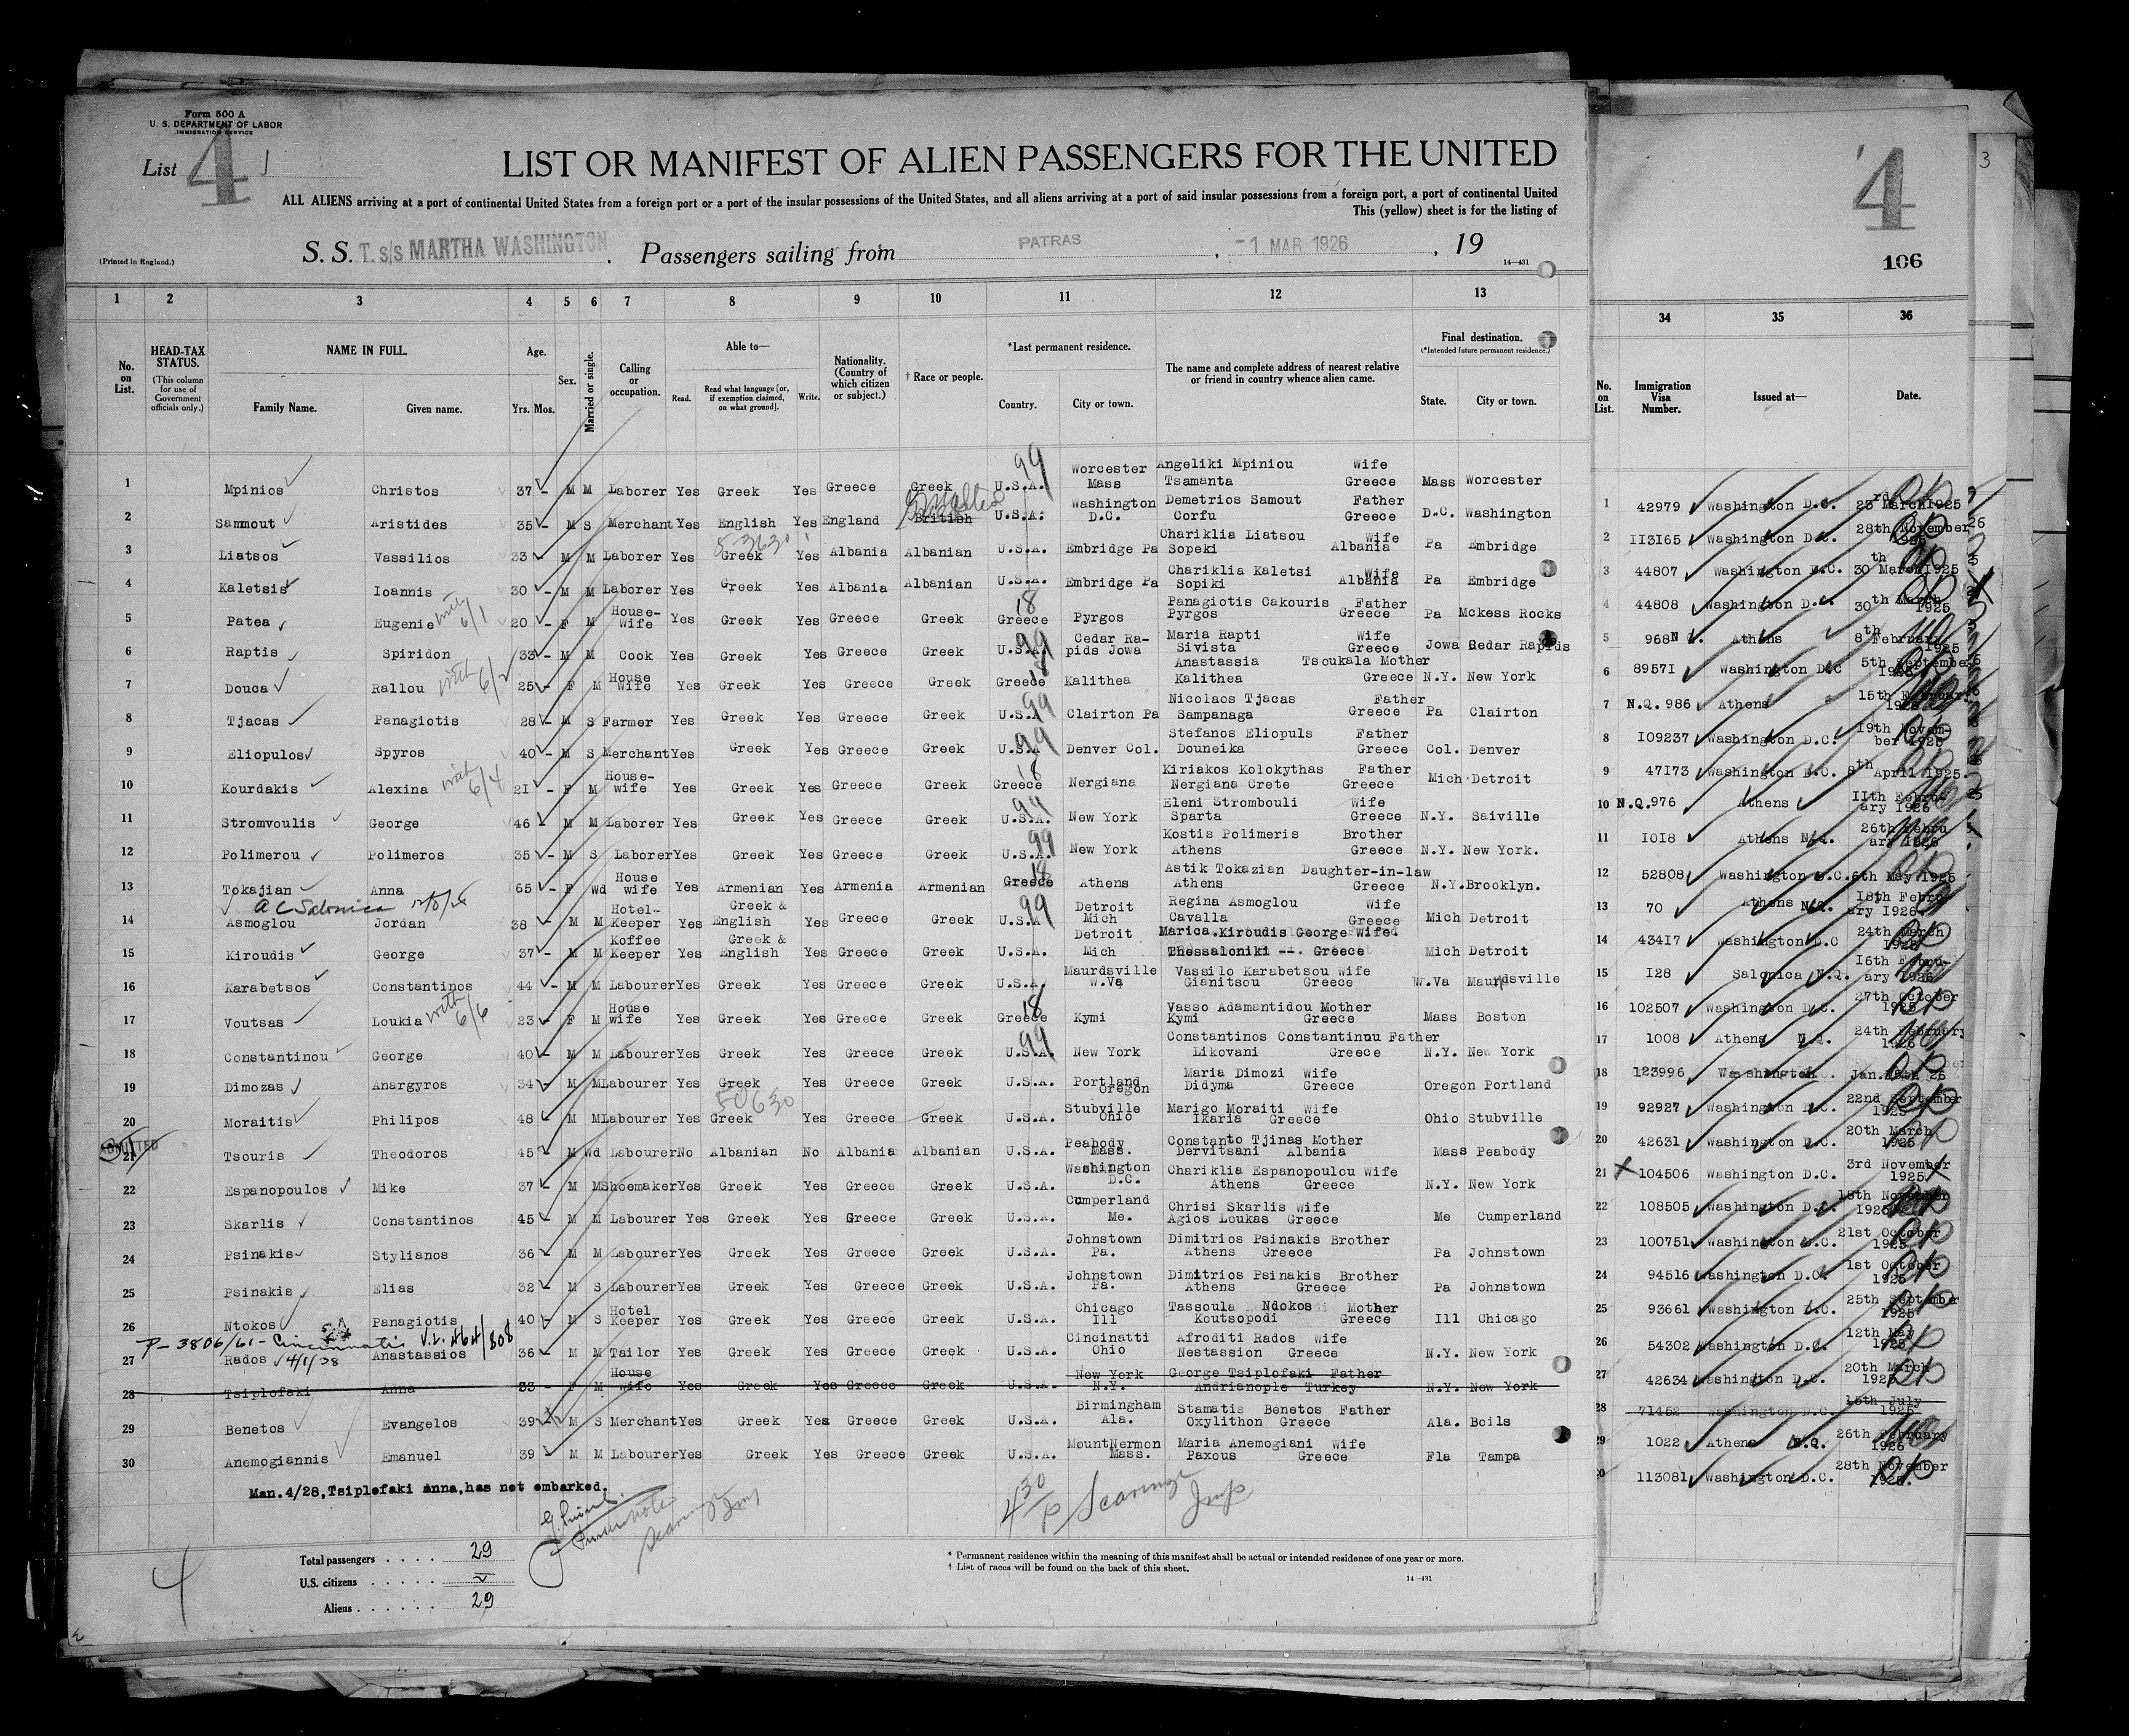 Form 500 A
U. S. DEPARTMENT OF LABOR
IMMIGRATION SERVICE
List 4
LIST OR MANIFEST OF ALIEN PASSENGERS FOR THE UNITED
ALL ALIENS arriving at a port of continental United States from a foreign port or a port of the insular possessions of the United States, and all aliens arriving at a port of said insular possessions from a foreign port, a port of continental United
This (yellow) sheet is for the listing of
(Printed in England.)
S. S. T. s/s MARTHA WASHINGTON . Passengers sailing from PATRAS , -1 MAR 1926 , 19
14—431
4
106
3
1 2 3 4 5 6 7 8 9 10 11 12 13 34 35 36
No. on List. HEAD-TAX STATUS. (This column for use of Government officials only.) NAME IN FULL. Family Name. Given name. Age. Yrs. Mos. Sex. Married or single. Calling or occupation. Able to— Read. Read what language [or, if exemption claimed, on what ground]. Write. Nationality. (Country of which citizen or subject.) † Race or people. *Last permanent residence. Country. City or town. The name and complete address of nearest relative or friend in country whence alien came. Final destination. (*Intended future permanent residence.) State. City or town.
No. on List. Immigration Visa Number. Issued at— Date.
1 Mpinios Christos 37 - M M Laborer Yes Greek Yes Greece Greek U.S.A. 99 Worcester Mass Angeliki Mpiniou Wife Tsamanta Greece Mass Worcester
2 Sammout Aristides 35 - M S Merchant Yes English Yes England British U.S.A. Washington D.C. Demetrios Samout Father Corfu Greece D.C. Washington
3 Liatsos Vassilios 33 - M M Laborer Yes Greek Yes Albania Albanian U.S.A. Embridge Pa Chariklia Liatsou Wife Sopeki Albania Pa Embridge
4 Kaletsis Ioannis 30 - M M Laborer Yes Greek Yes Albania Albanian U.S.A. Embridge Pa Chariklia Kaletsi Wife Sopiki Albania Pa Embridge
5 Patea Eugenie with 6/1 20 - F M House-wife Yes Greek Yes Greece Greek Greece 18 Pyrgos Panagiotis Cakouris Father Pyrgos Greece Pa Mckess Rocks
6 Raptis Spiridon 33 - M M Cook Yes Greek Yes Greece Greek U.S.A. 99 Cedar Ra-pids Jowa Maria Rapti Wife Sivista Greece Jowa Cedar Rapids
7 Douca Rallou with 6/2 25 - F M House Wife Yes Greek Yes Greece Greek Greece 18 Kalithea Anastassia Tsoukala Mother Kalithea Greece N.Y. New York
8 Tjacas Panagiotis 28 - M S Farmer Yes Greek Yes Greece Greek U.S.A 99 Clairton Pa Nicolaos Tjacas Father Sampanaga Greece Pa Clairton
9 Eliopulos Spyros 40 - M S Merchant Yes Greek Yes Greece Greek U.S.A 99 Denver Col. Stefanos Eliopuls Father Douneika Greece Col. Denver
10 Kourdakis Alexina with 6/4 21 - F M House-wife Yes Greek Yes Greece Greek Greece 18 Nergiana Kiriakos Kolokythas Father Nergiana Crete Greece Mich Detroit
11 Stromvoulis George 46 - M M Laborer Yes Greek Yes Greece Greek U.S.A. 99 New York Eleni Strombouli Wife Sparta Greece N.Y. Saiville
12 Polimerou Polimeros 35 - M S Laborer Yes Greek Yes Greece Greek U.S.A. 99 New York Kostis Polimeris Brother Athens Greece N.Y. New York.
13 Tokajian Anna 65 - F Wd House wife Yes Armenian Yes Armenia Armenian Greece 18 Athens Astik Tokazian Daughter-in-law Athens Greece N.Y. Brooklyn.
14 Asmoglou Jordan 38 - M M Hotel-Keeper Yes Greek & English Yes Greece Greek U.S.A 99 Detroit Mich Regina Asmoglou Wife Cavalla Greece Mich Detroit
15 Kiroudis George 37 - M M Koffee Keeper Yes Greek & English Yes Greece Greek U.S.A. Detroit Mich Marica. Kiroudis George Wife. Thessaloniki --. Greece Mich Detroit
16 Karabetsos Constantinos 44 - M M Labourer Yes Greek Yes Greece Greek U.S.A. Maurdsville W.Va Vassilo Karabetsou Wife Gianitsou Greece W.Va Maurdsville
17 Voutsas Loukia with 6/6 23 - F M House wife Yes Greek Yes Greece Greek Greece 18 Kymi Vasso Adamantidou Mother Kymi Greece Mass Boston
18 Constantinou George 40 - M M Labourer Yes Greek Yes Greece Greek U.S.A. 99 New York Constantinos Constantinnu Father Likovani Greece N.Y. New York
19 Dimozas Anargyros 34 - M M Labourer Yes Greek Yes Greece Greek U.S.A. Portland Oregon Maria Dimozi Wife Didyma Greece Oregon Portland
20 Moraitis Philipos 48 M M Labourer Yes Greek Yes Greece Greek U.S.A. Stubville Ohio Marigo Moraiti Wife Ikaria Greece Ohio Stubville
ADMITTED
21 Tsouris Theodoros 45 - M Wd Labourer No Albanian No Albania Albanian U.S.A. Peabody Mass. Constanto Tjinas Mother Dervitsani Albania Mass Peabody
22 Espanopoulos Mike 37 - M M Shoemaker Yes Greek Yes Greece Greek U.S.A. Washington D.C. Chariklia Espanopoulou Wife Athens Greece N.Y. New York
23 Skarlis Constantinos 45 - M M Labourer Yes Greek Yes Greece Greek U.S.A. Cumperland Me. Chrisi Skarlis Wife Agios Loukas Greece Me Cumperland
24 Psinakis Stylianos 36 - M M Labourer Yes Greek Yes Greece Greek U.S.A. Johnstown Pa. Dimitrios Psinakis Brother Athens Greece Pa Johnstown
25 Psinakis Elias 32 - M S Labourer Yes Greek Yes Greece Greek U.S.A. Johnstown Pa. Dimitrios Psinakis Brother Athens Greece Pa Johnstown
26 Ntokos Panagiotis 40 - M S Hotel Keeper Yes Greek Yes Greece Greek U.S.A. Chicago Ill Tassoula Ndokos Mother Koutsopodi Greece Ill Chicago
P-3806/61 - Cincinnati
27 Rados 4/1/38 Anastassios 36 - M M Tailor Yes Greek Yes Greece Greek U.S.A. Cincinatti Ohio Afroditi Rados Wife Nestassion Greece N.Y. New York
28 Tsiplofaki Anna 33 - F M House wife Yes Greek Yes Greece Greek U.S.A. New York N.Y. George Tsiplofaki Father Andrianople Turkey N.Y. New York
29 Benetos Evangelos 39 - M S Merchant Yes Greek Yes Greece Greek U.S.A. Birmingham Ala. Stamatis Benetos Father Oxylithon Greece Ala. Boils
30 Anemogiannis Emanuel 39 - M M Labourer Yes Greek Yes Greece Greek U.S.A. MountNermon Mass. Maria Anemogiani Wife Paxous Greece Fla Tampa
Man.4/28,Tsiplofaki Anna,has not embarked.
1 42979 Washington D.C. 23rd March 1925
2 113165 Washington D.C. 28th November 1925
3 44807 Washington D.C. 30th March 1925
4 44808 Washington D.C. 30th March 1925
5 968 N Athens 8th February
6 89571 Washington D.C 5th September 1925
7 N.Q. 986 Athens 15th February 1926
8 109237 Washington D.C. 19th Novem-ber 1925
9 47173 Washington D.C. 8th April 1925.
10 N.Q. 976 Athens 11th Febru-ary 1926
11 1018 Athens N.Q. 26th Febru ary 1926
12 52808 Washington D.C. 6th May 1925
13 70 Athens N.Q. 18th Febru ary 1926.
14 43417 Washington D.C 24th March 1925
15 128 Salonica N.Q. 16th Febru-ary 1926
16 102507 Washington D.C. 27th October 1925
17 1008 Athens N.Q. 24th February 1926
18 123996 Washington Jan.
19 92927 Washington D.C. 22nd September 1925
20 42631 Washington D.C. 20th March 1925
21 104506 Washington D.C. 3rd November 1925
22 108505 Washington D.C. 18th November 1925
23 100751 Washington D.C. 21st October 1925
24 94516 Washington D.C. 1st October 1925
25 93661 Washington D.C. 25th September 1925
26 54302 Washington D.C. 12th May 1925
27 42634 Washington D.C. 20th March 1925
28 71452 Washington D.C. 15th July 1925
29 1022 Athens N.Q. 26th February 1926
113081 Washington D.C. 28th November 1925.
Total passengers . . . . 29
U.S. citizens . . . . .
Aliens . . . . . . 29
4
* Permanent residence within the meaning of this manifest shall be actual or intended residence of one year or more.
† List of races will be found on the back of this sheet.
14—431